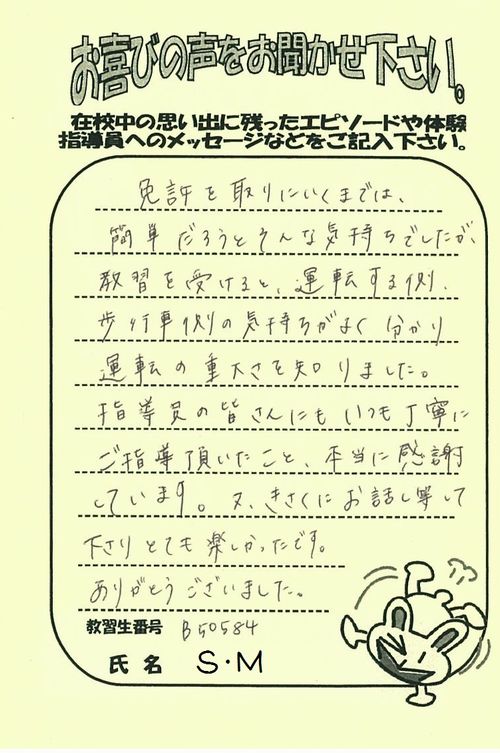 お喜びの声をお聞かせ下さい。
在校中の思い出に残ったエピソードや体験
指導員へのメッセージなどをご記入下さい。
免許を取りにいくまでは、
簡単だろうとそんな気持ちでしたが、
教習を受けると、運転する側、
歩行車側の気持ちがよく分かり
運転の重大さを知りました。
指導員の皆さんにもいつも丁寧に
ご指導頂いたこと、本当に感謝
しています。又、きさくにお話し等して
下さりとても楽しかったです。
ありがとうございました。
教習生番号 B50584
氏名 S・M